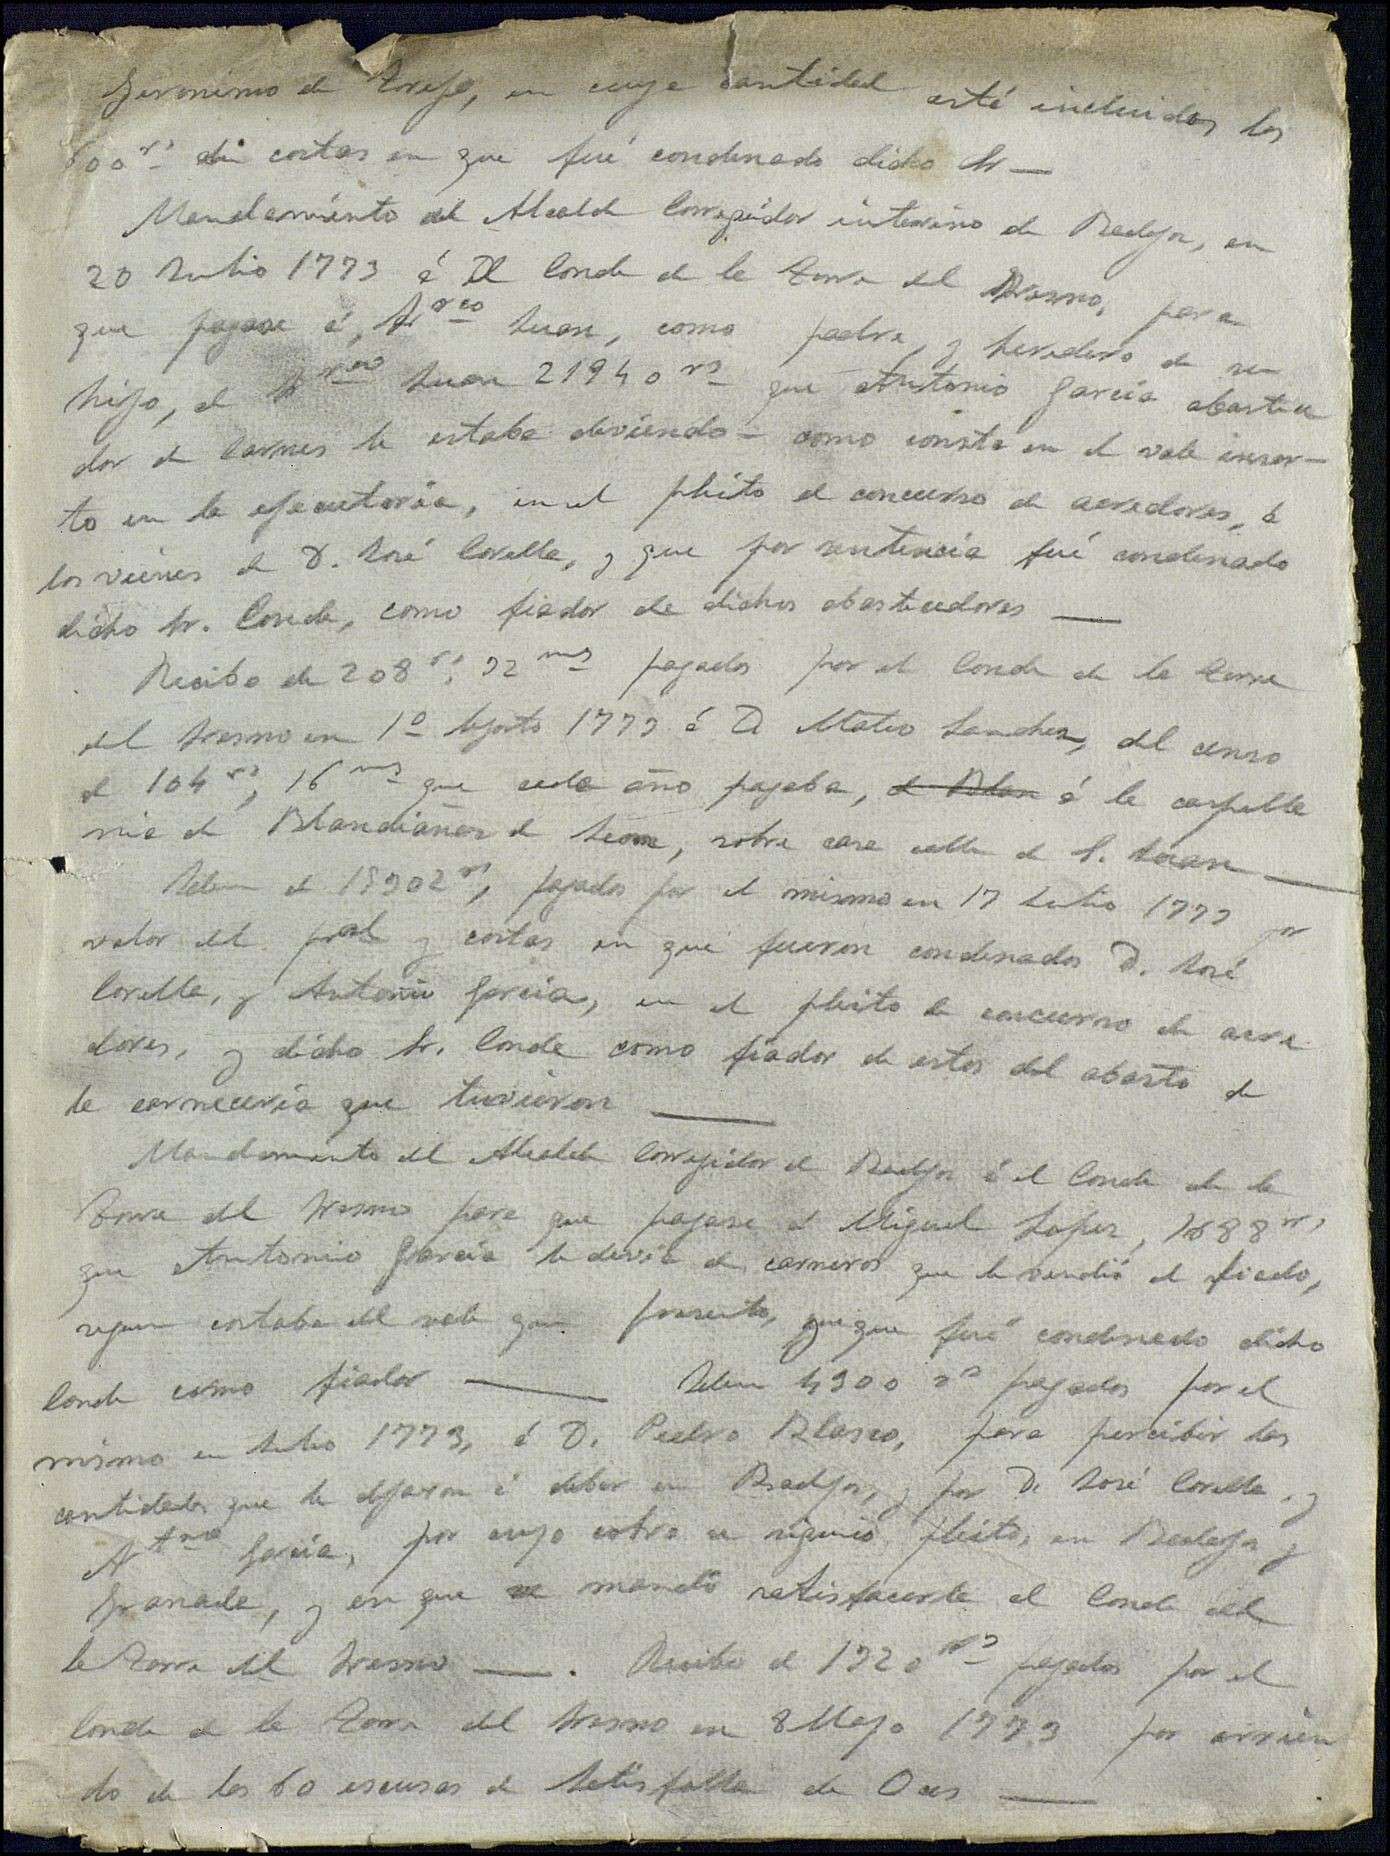 Geronimo de Trejo, en cuya cantidad está incluidos los
600 rs de costas en que fué condenado dicho Sr —
Mandamiento del Alcalde Corregidor interino de Badajoz, en
20 Julio 1773 á El Conde de la Torre del Fresno, para
que pagase á, Frco Juan, como padre, y heredero de su
hijo, el Frco Juan 21940 rs que Antonio Garcia abastece
dor de Carnes le estaba deviendo — como consta en el vale inser-
to en la ejecutoria, en el pleito de concurso de acredores, á
los vienes de D. José Corella, y que por sentencia fué condenado
dicho Sr. Conde, como fiador de dichos abastecedores —
Recibo de 208 rs, 32 ms pagados por el Conde de la Torre
del Fresno en 1º Agosto 1773 á D Mateo Sanchez, del censo
de 104 rs, 16 ms que cada año pagaba, á la capella
nia de Blandiañez de Leon, sobre casa calle de S. Juan —
Idem de 18302 rs, pagados por el mismo en 17 Julio 1773 por
valor del pral y costas en que fueron condenados D. José
Corella, y Antonio Garcia, en el pleito de concurso de acre
dores, y dicho Sr. Conde como fiador de estos del abasto de
la carneceria que tuvieron —
Mandamiento del Alcalde Corregidor de Badajoz á el Conde de la
Torre del Fresno para que pagase á Miguel Lopez, 1688 rs,
que Antonio Garcia le devia de carneros que le vendió al fiado,
segun costaba del vale que presento, y que fué condenado dicho
Conde como fiador — Idem 4300 rs pagados por el
mismo en Julio 1773, á D. Pedro Blasco, para percibir las
cantidades que le dejaron á deber en Badajoz, y por D. José Corella, y
Antno Garcia, por cuyo cobro se siguió pleito, en Badajoz y
Granada, y en que se mandó satisfacerle al Conde del
la Torre del Fresno —. Recibo de 1320 rs pagados por el
Conde de la Torre del Fresno en 8 Mayo 1773 por arrien
do de las 60 escusas de Setisfolla de Oces —